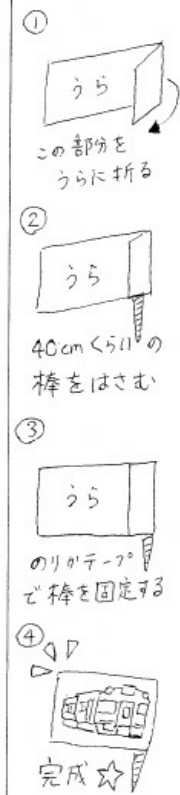 ①
うら
この部分を
うらに折る
②
うら
40cmくらいの
棒をはさむ
③
うら
のりかテープ
で棒を固定する
④
完成☆